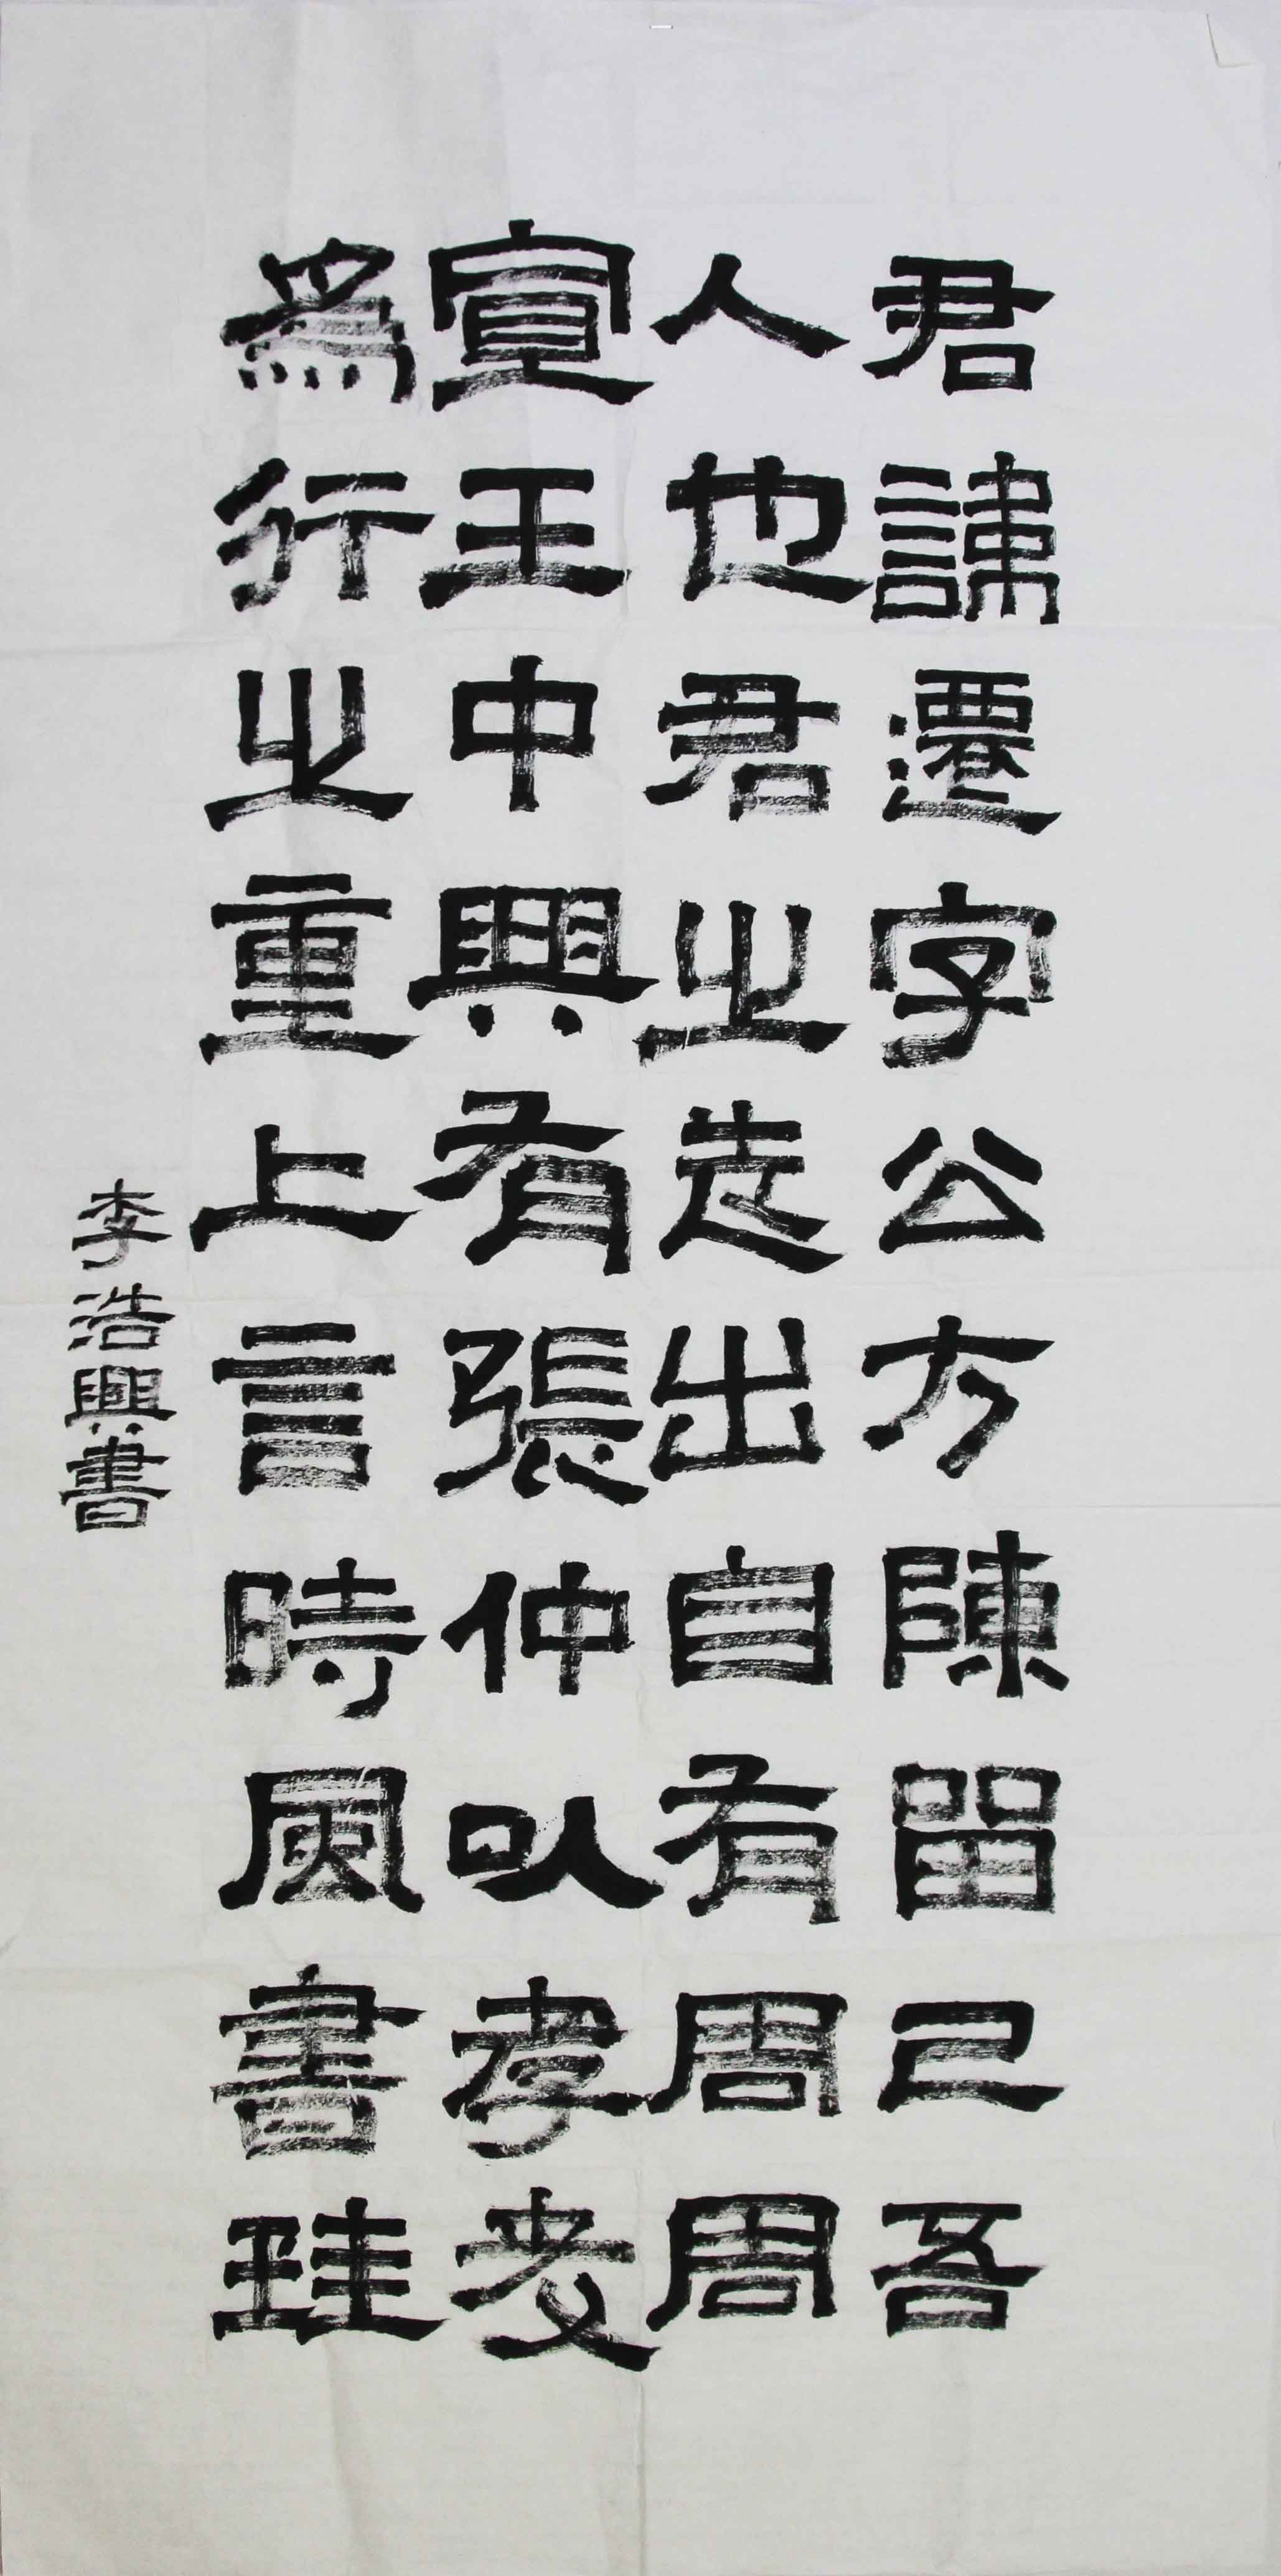 君諱遷字公方陳留己吾
人也君之先出自有周周
宣王中興有張仲以孝友
爲行之重上言時風書珪
李浩興書